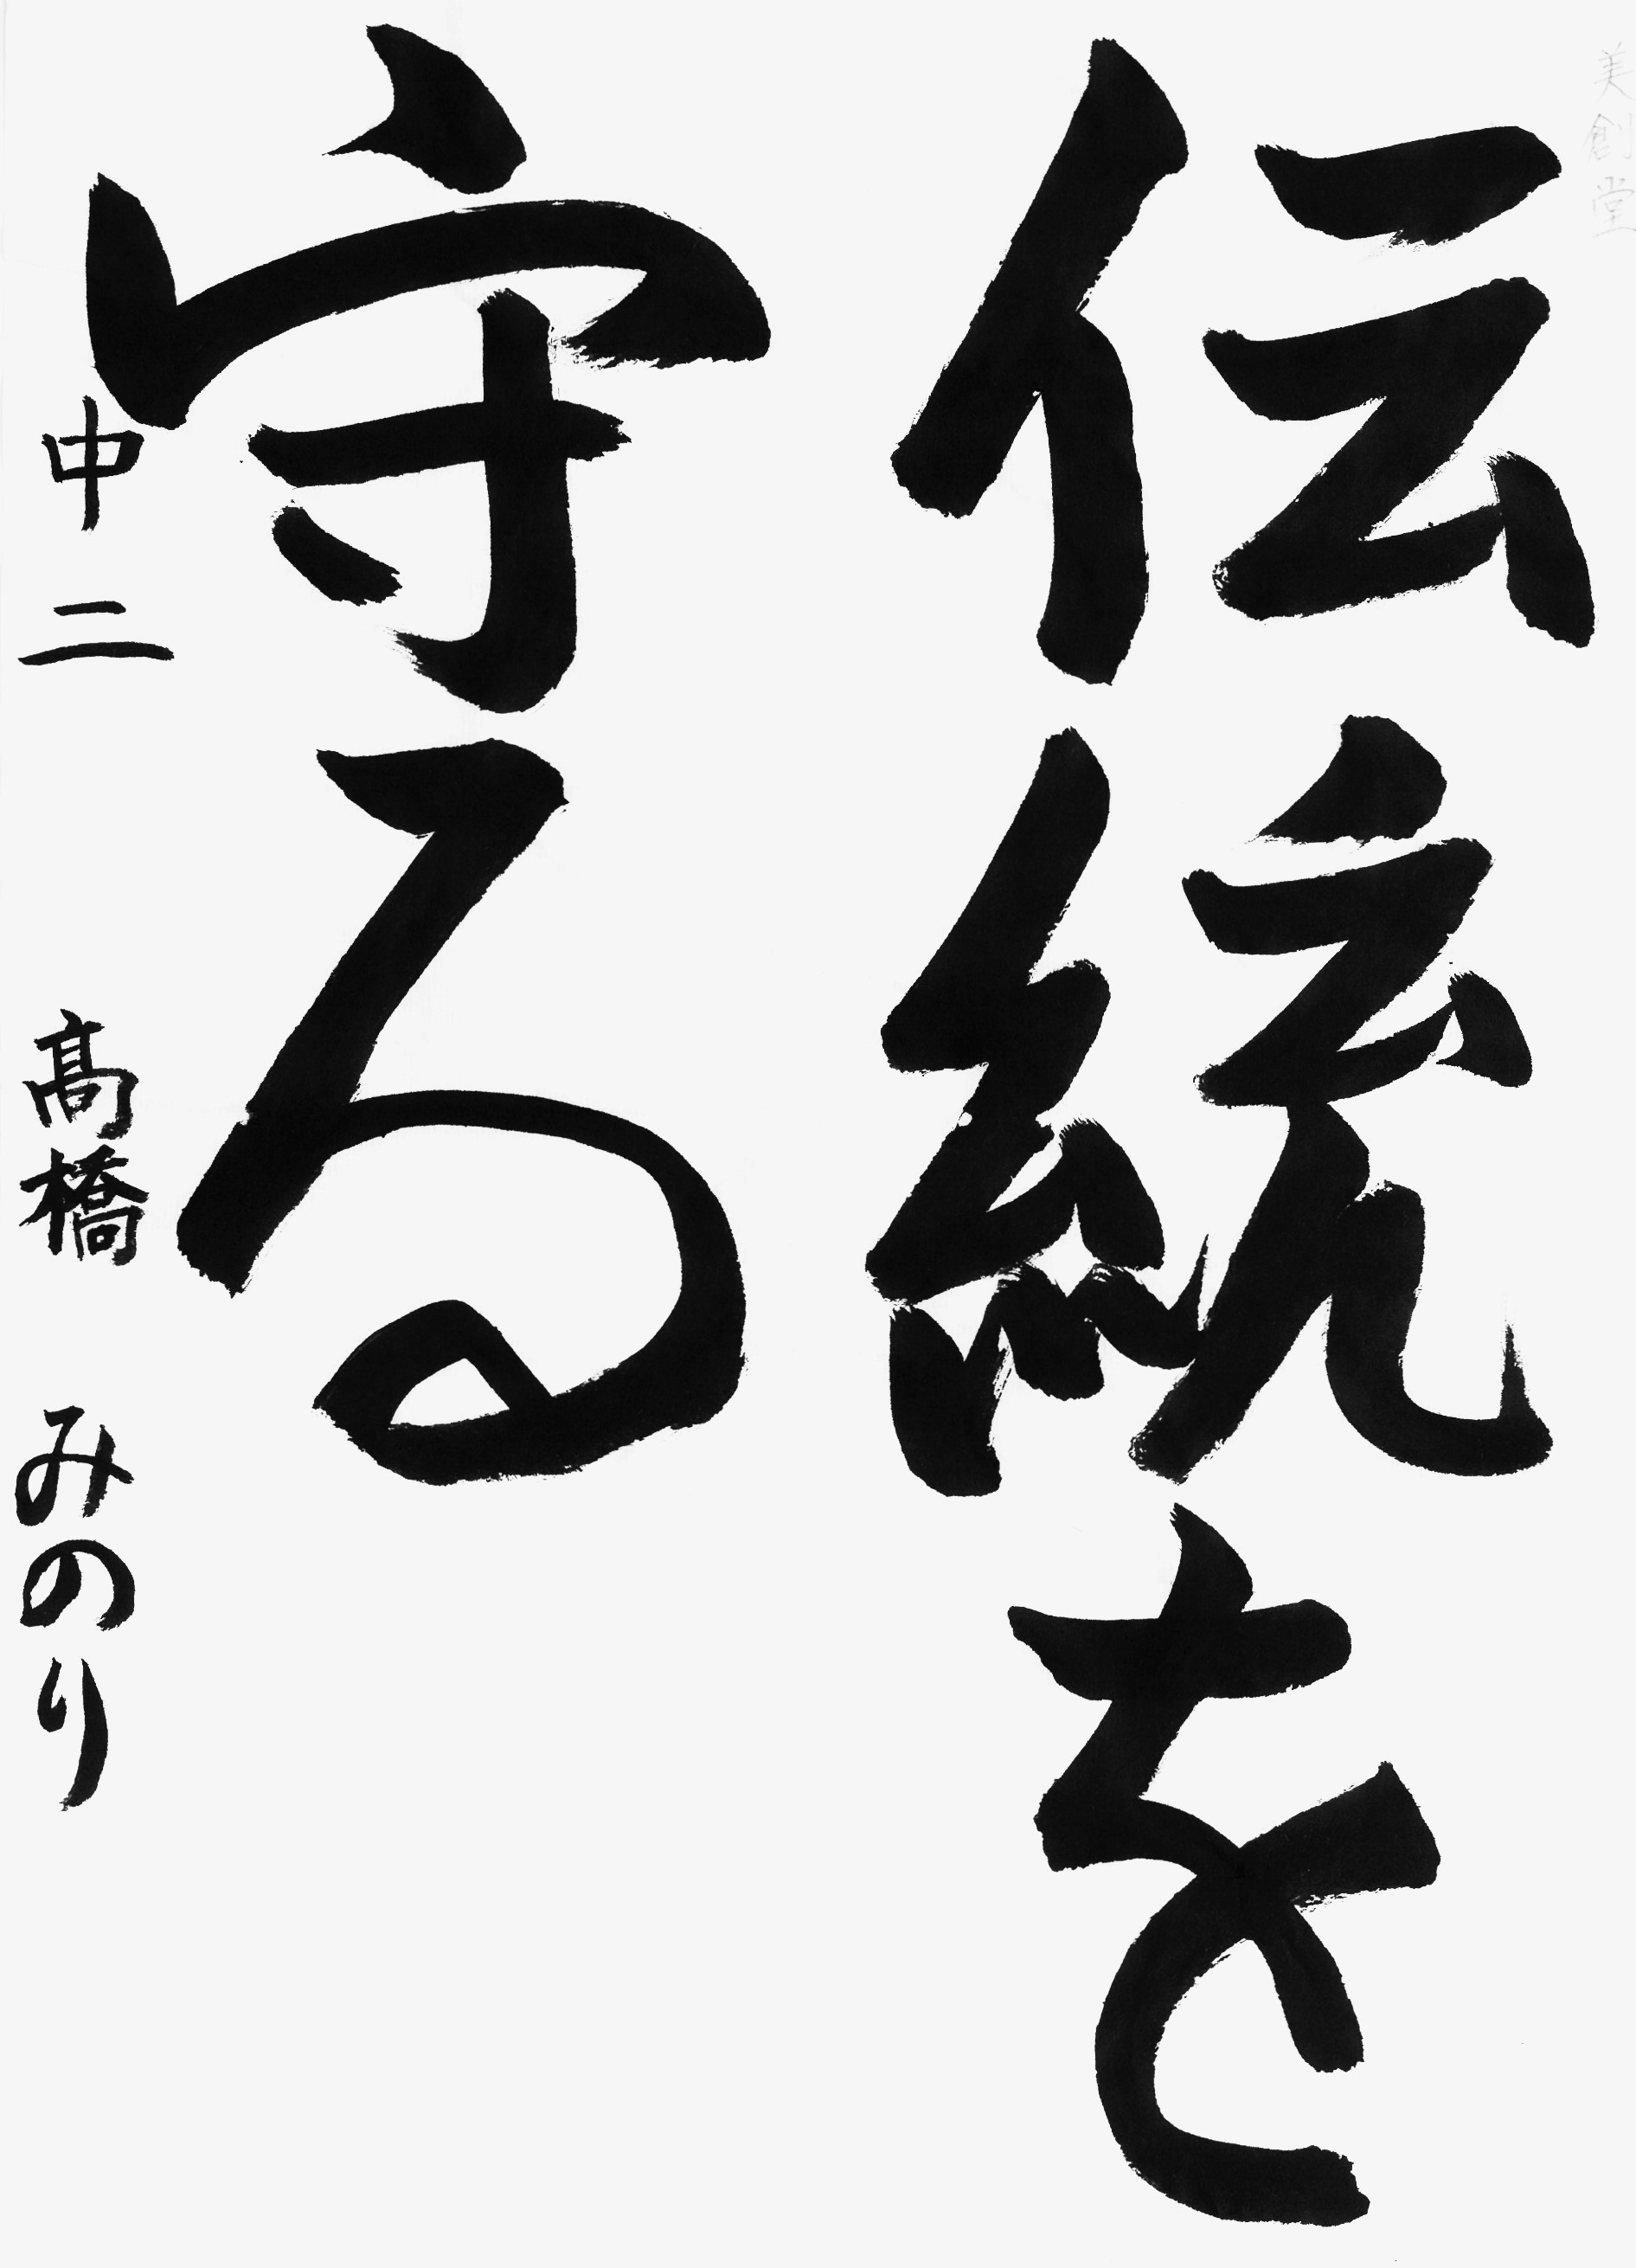 美創堂
伝統を
守る
中二 髙橋 みのり